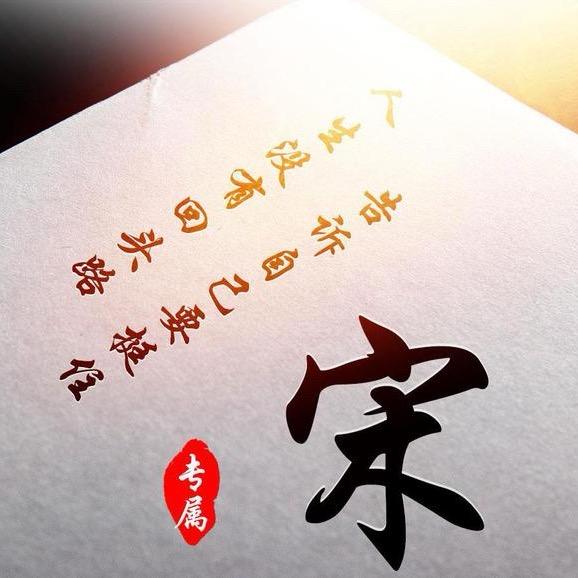 人生没有回头路
告诉自己要挺住
宋
专属